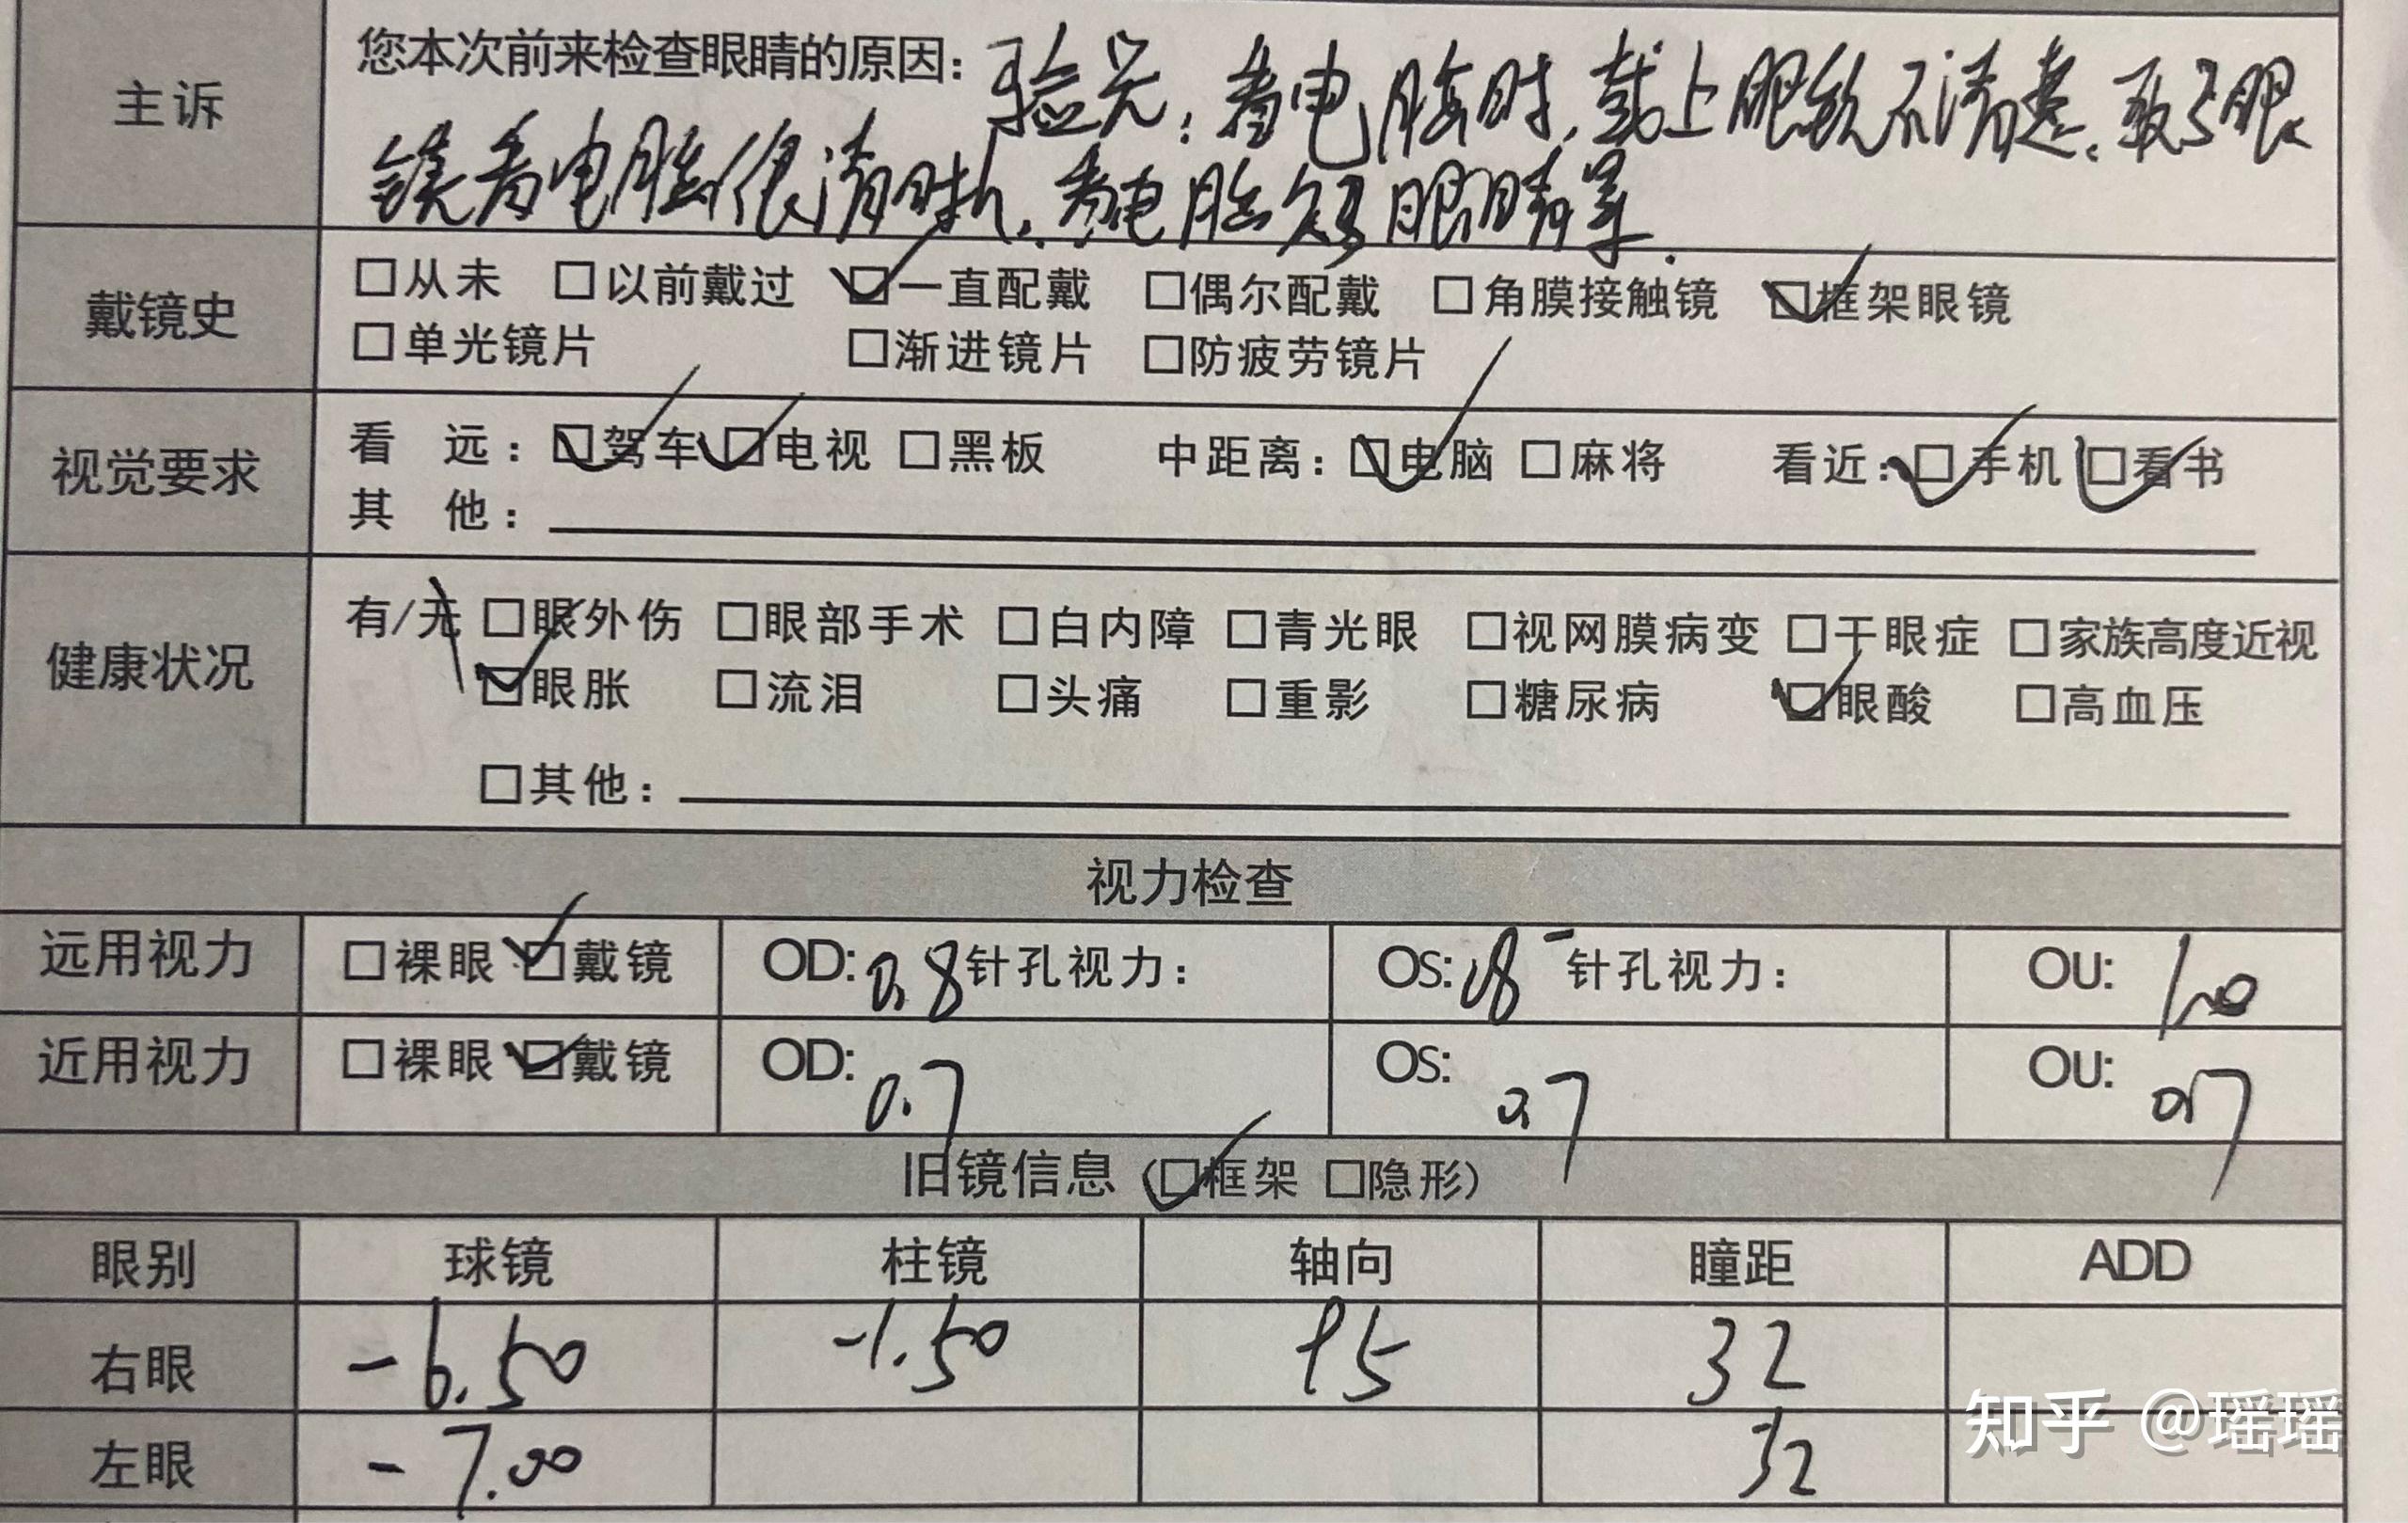 主诉 您本次前来检查眼睛的原因：验光：看电脑时，戴上眼镜不清楚、取了眼
镜看电脑很清晰，看电脑久了眼睛累．
戴镜史 □从未 □以前戴过 ☑一直配戴 □偶尔配戴 □角膜接触镜 ☑框架眼镜
□单光镜片 □渐进镜片 □防疲劳镜片
视觉要求 看远：☑驾车 ☑电视 □黑板 中距离：☑电脑 □麻将 看近：☑手机 ☑看书
其他：
健康状况 有/无 □眼外伤 □眼部手术 □白内障 □青光眼 □视网膜病变 □干眼症 □家族高度近视
☑眼胀 □流泪 □头痛 □重影 □糖尿病 ☑眼酸 □高血压
□其他：
视力检查
远用视力 □裸眼 ☑戴镜 OD: 0.8 针孔视力： OS: 0.8⁻ 针孔视力： OU: 1.0
近用视力 □裸眼 ☑戴镜 OD: 0.7 OS: 0.7 OU: 0.7
旧镜信息（☑框架 □隐形）
眼别 球镜 柱镜 轴向 瞳距 ADD
右眼 -6.50 -1.50 32
左眼 -7.00 32
知乎 @瑶瑶